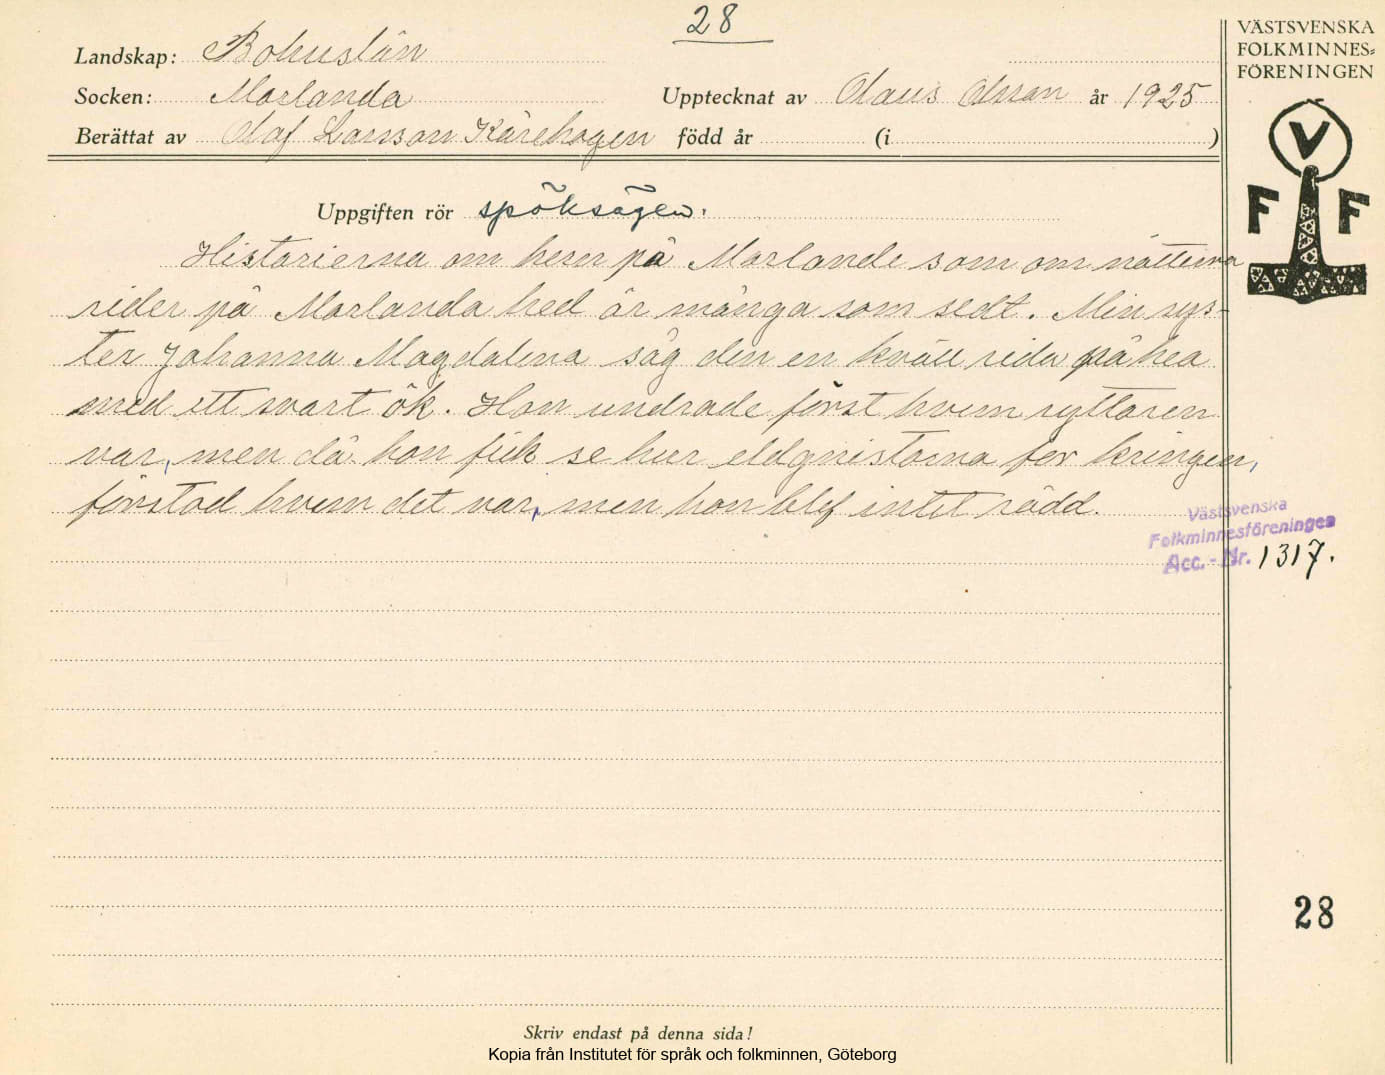 28
Landskap: Bohuslän
Socken: Morlanda Upptecknat av Olaus Olsson år 1925
Berättat av Olaf Larsson Kärehogen född år (i )
VÄSTSVENSKA
FOLKMINNES=
FÖRENINGEN
V
F F
Uppgiften rör spöksägen.
Historierna om herrn på Morlanda som om nätterna
rider på Morlanda hed är många som sedt. Min sys-
ter Johanna Magdalena såg den en kväll rida på hea
med ett svart ök. Hon undrade först hvem ryttaren
var, men då hon fick se hur eldgnistorna for kringen,
förstod hvem det var, men hon blef intet rädd.
Västsvenska
Folkminnesföreningen
Acc. - Nr. 1317.
28
Skriv endast på denna sida!
Kopia från Institutet för språk och folkminnen, Göteborg